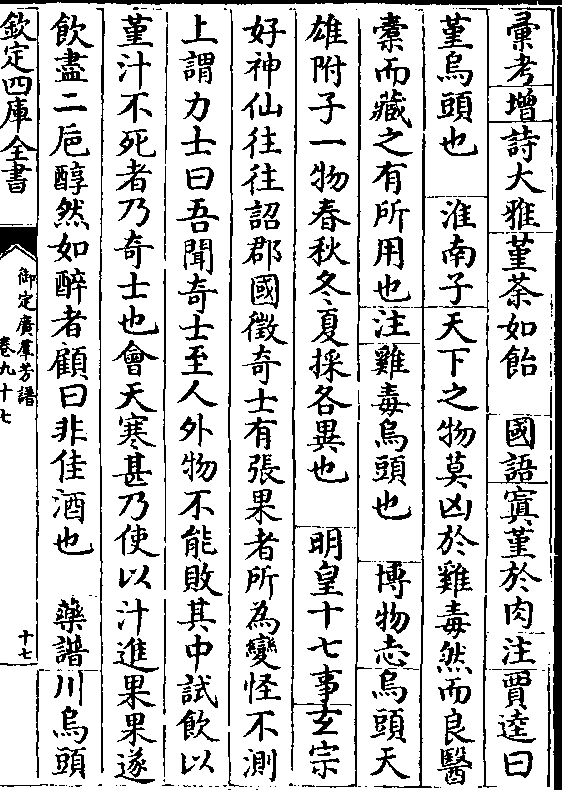 彚考增詩大雅堇荼如飴　國語寘堇於肉注賈逵曰
堇烏頭也　淮南子天下之物莫凶於雞毒然而良醫
橐而藏之有所用也注雞毒烏頭也　博物志烏頭天
雄附子一物春秋冬夏採各異也　明皇十七事玄宗
好神仙往往詔郡國徵奇士有張果者所為變怪不測
上謂力士曰吾聞奇士至人外物不能敗其中試飲以
堇汁不死者乃奇士也會天寒甚乃使以汁進果果遂
飲盡二巵醇然如醉者顧曰非佳酒也　藥譜川烏頭
欽定四庫全書
御定廣羣芳譜
卷九十七
十七